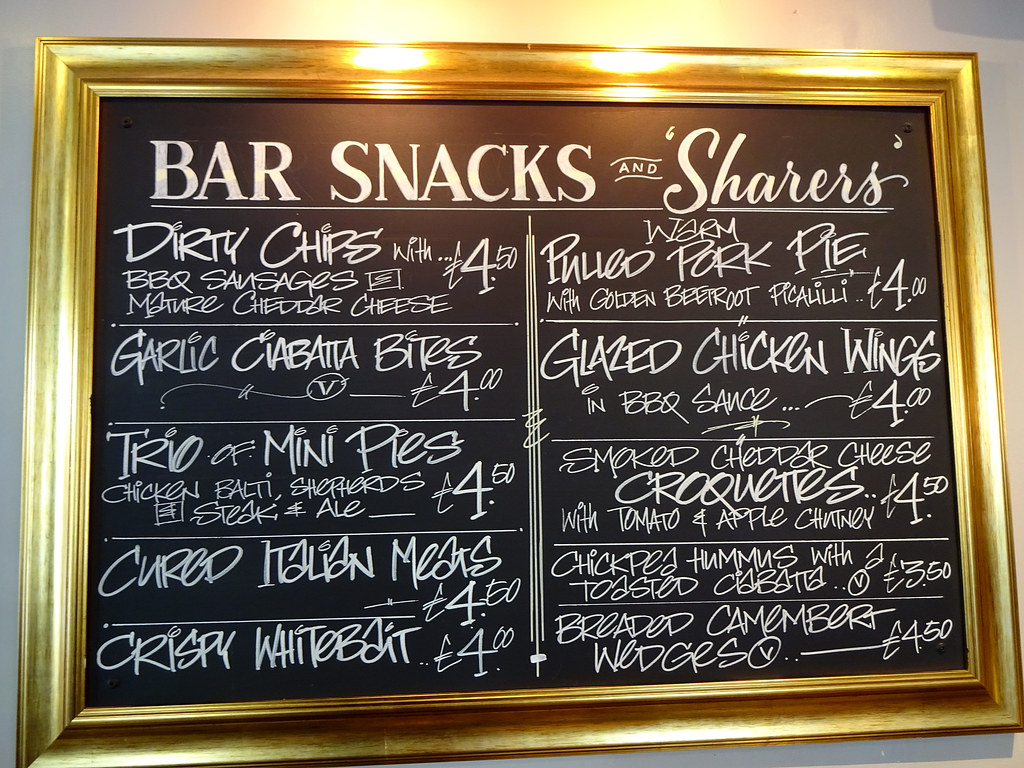 BAR SNACKS AND 'Sharers'
DIRTY CHIPS with ... £4.50
BBQ SAUSAGES &
MATURE CHEDDAR CHEESE
GARLIC CIABATTA BITES
V £4.00
TRIO OF MINI PIES
CHICKEN BALTI, SHEPHERDS £4.50
& STEAK & ALE
CURED ITALIAN MEATS
£4.50
CRISPY WHITEBAIT .. £4.00
WARM
PULLED PORK PIE
with GOLDEN BEETROOT PICALILLI .. £4.00
GLAZED CHICKEN WINGS
in BBQ SAUCE ... £4.00
SMOKED CHEDDAR CHEESE
CROQUETTES.. £4.50
with TOMATO & APPLE CHUTNEY
CHICKPEA HUMMUS WITH a
TOASTED CIABATA .. V £3.50
BREADED CAMEMBERT
WEDGES V .. £4.50